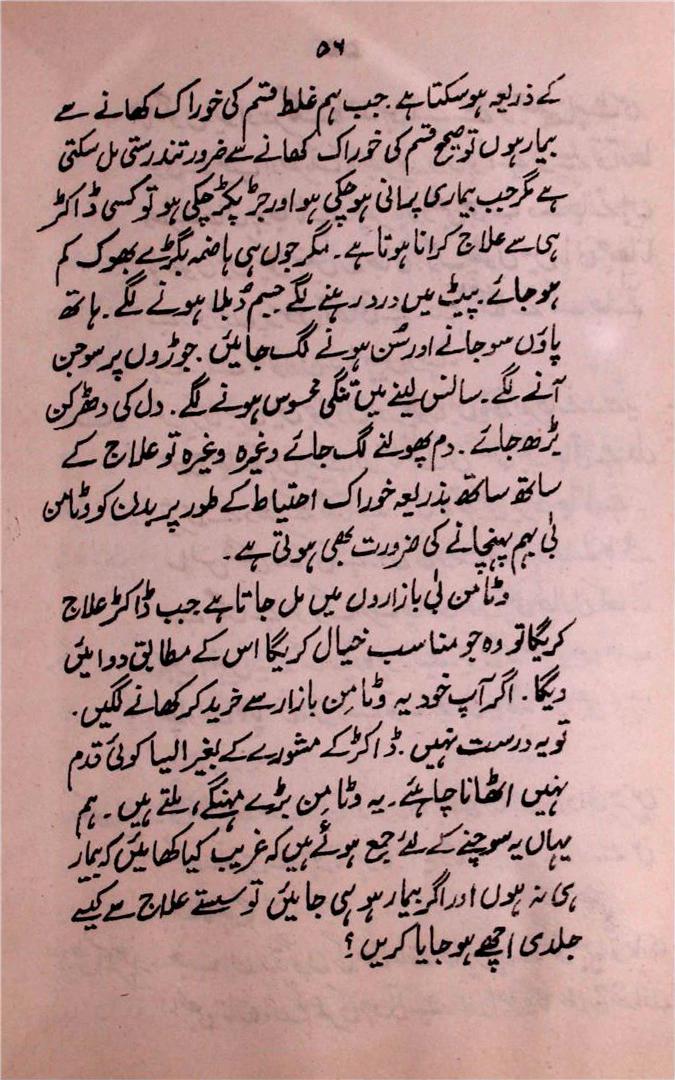 ۵۶
کے ذریعہ ہوسکتا ہے۔ جب ہم غلط قسم کی خوراک کھانے سے
بیمار ہوں تو صحیح قسم کی خوراک کھانے سے ضرور تندرستی مل سکتی
ہے مگر جب بیماری پرانی ہوچکی ہو اور جڑ پکڑ چکی ہو تو کسی ڈاکٹر
ہی سے علاج کرانا ہوتا ہے۔ مگر جوں ہی ہاضمہ بگڑے بھوک کم
ہو جائے۔ پیٹ میں درد رہنے لگے جسم دُبلا ہونے لگے۔ ہاتھ
پاؤں سو جانے اور سُن ہونے لگ جائیں۔ جوڑوں پر سوجن
آنے لگے۔ سانس لینے میں تنگی محسوس ہونے لگے۔ دل کی دھڑکن
بڑھ جائے۔ دم پھولنے لگ جائے وغیرہ وغیرہ تو علاج کے
ساتھ ساتھ بذریعہ خوراک احتیاط کے طور پر بدن کو وٹامن
بی بہم پہنچانے کی ضرورت بھی ہوتی ہے۔
وٹامن بی بازاروں میں مل جاتا ہے جب ڈاکٹر علاج
کریگا تو وہ جو مناسب خیال کریگا اس کے مطابق دوائیں
دیگا۔ اگر آپ خود یہ وٹامِن بازار سے خرید کر کھانے لگیں۔
تو یہ درست نہیں۔ ڈاکٹر کے مشورے کے بغیر ایسا کوئی قدم
نہیں اٹھانا چاہئے۔ یہ وٹامِن بڑے مہنگے ملتے ہیں۔ ہم
یہاں یہ سوچنے کے لئے جمع ہوئے ہیں کہ غریب کیا کھائیں کہ بیمار
ہی نہ ہوں اور اگر بیمار ہو ہی جائیں تو سستے علاج سے کیسے
جلدی اچھے ہو جایا کریں؟